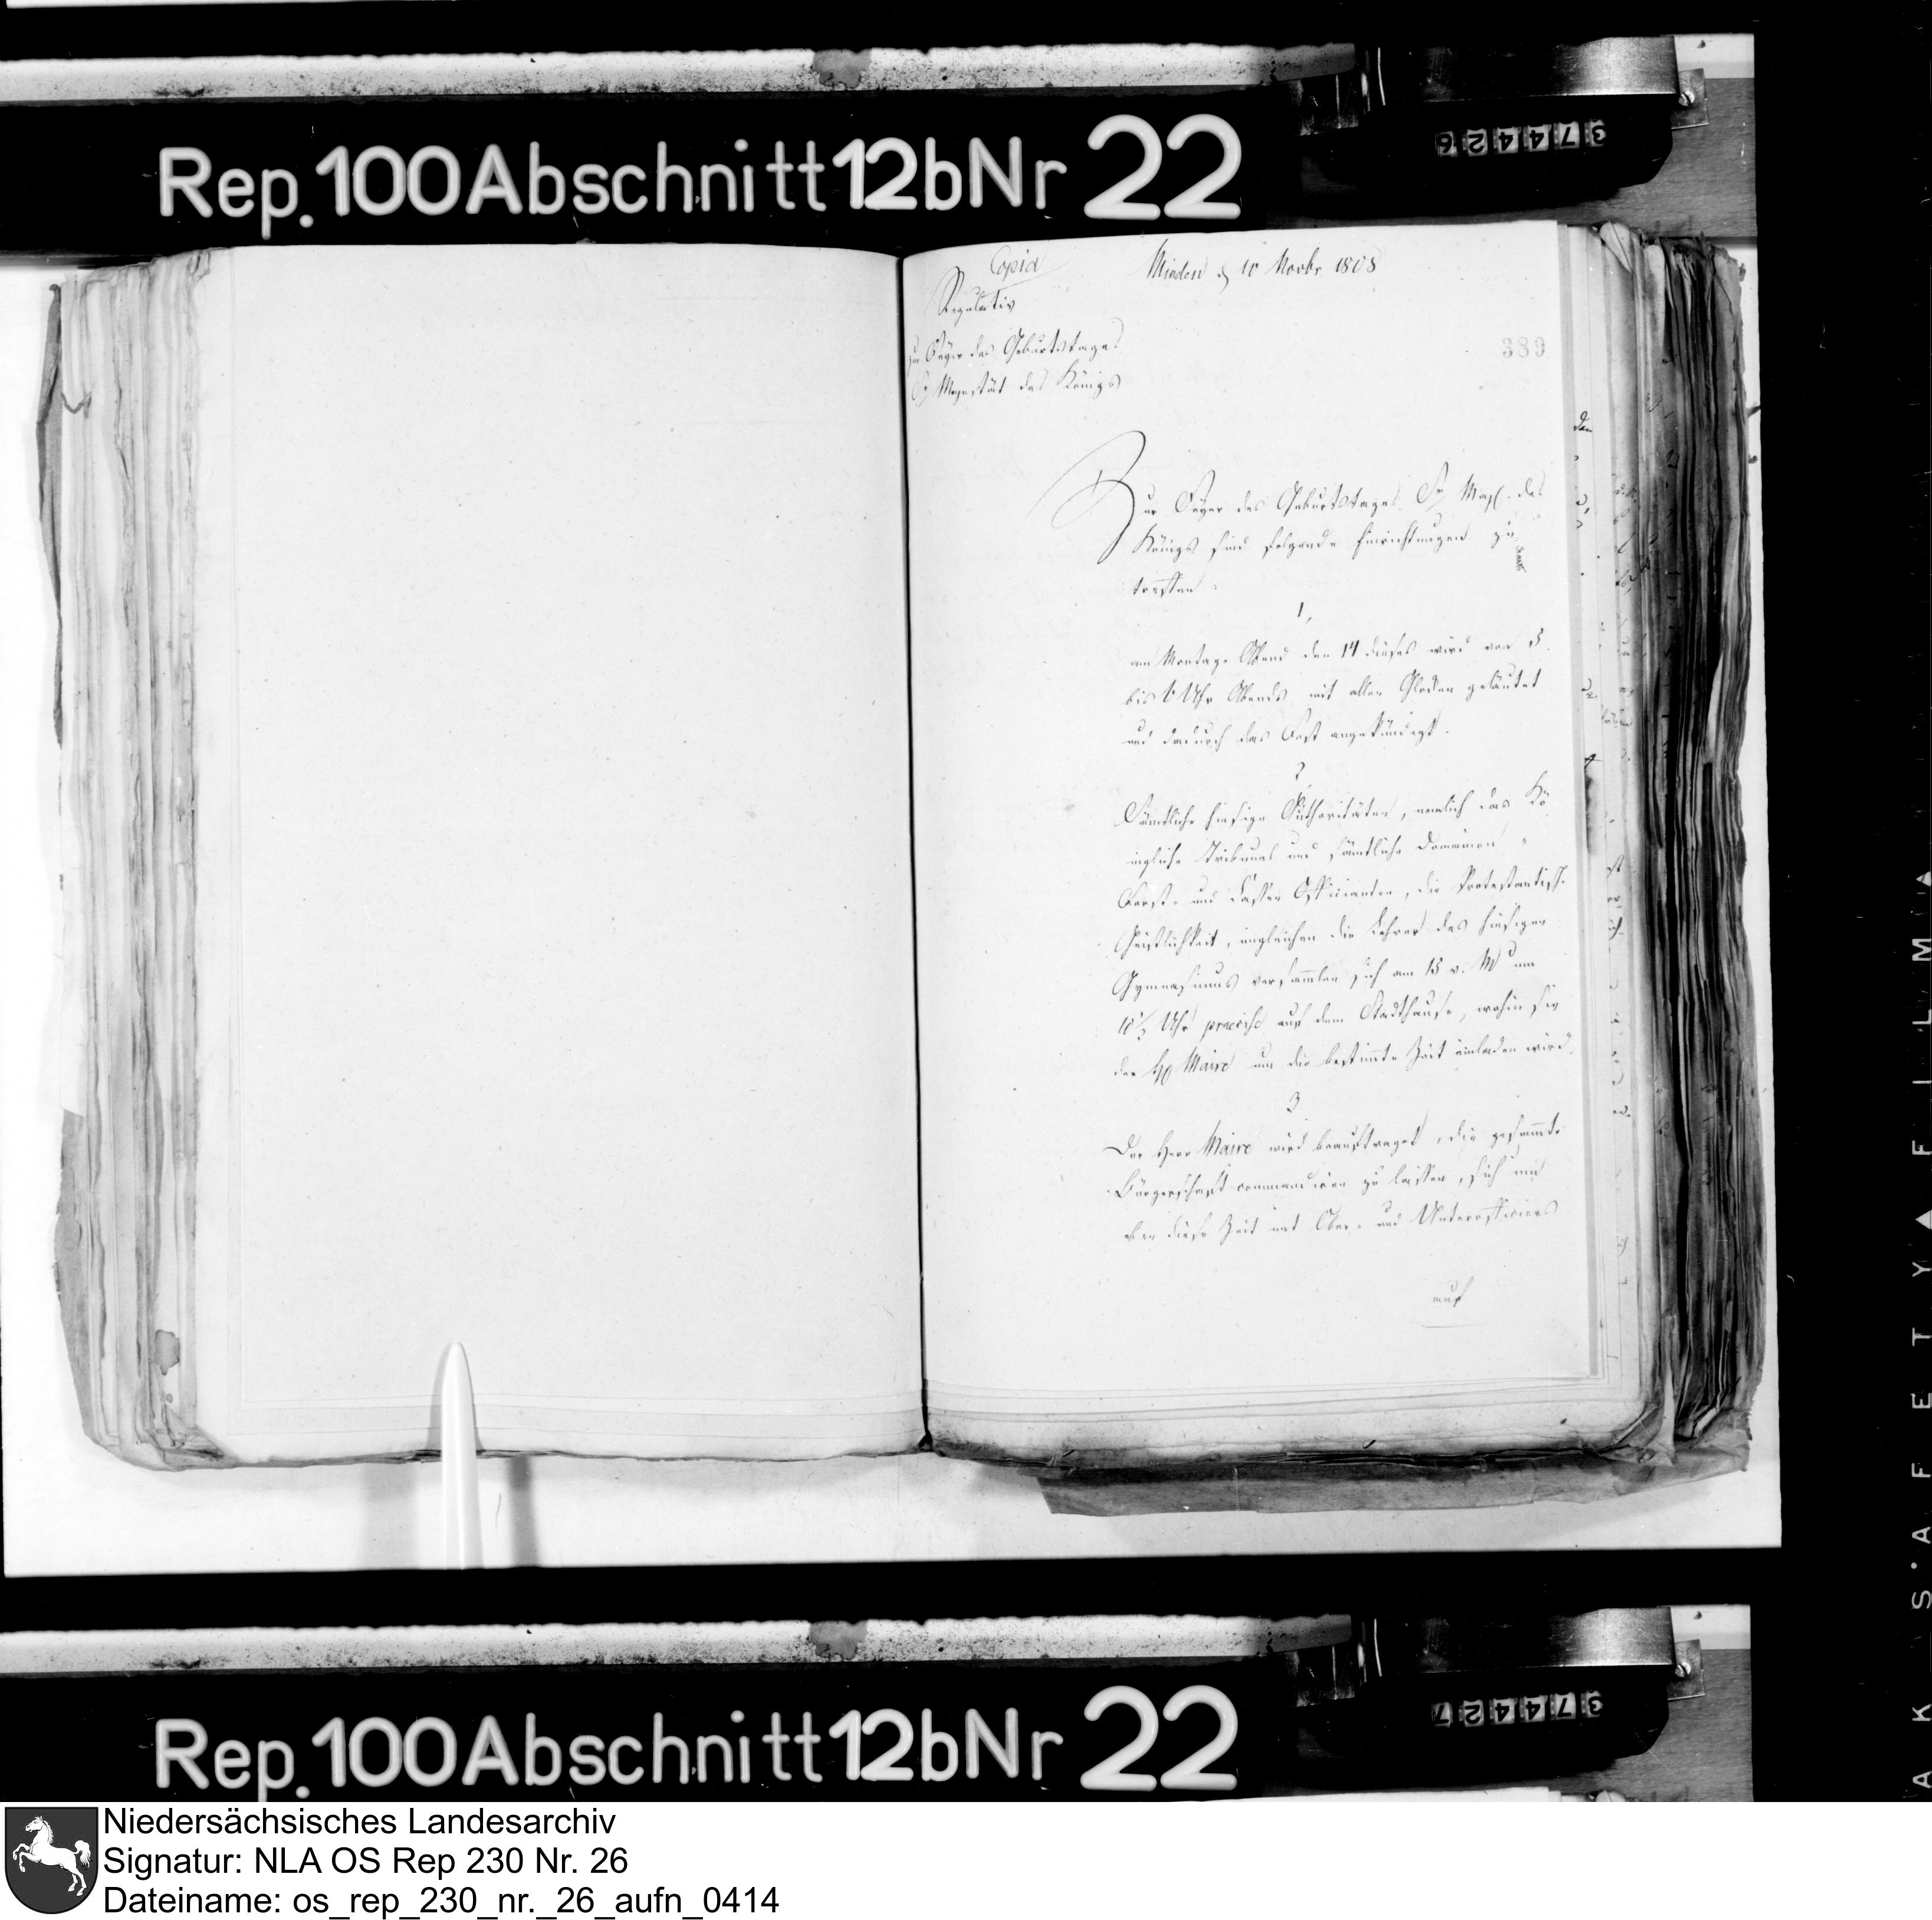 Rep. 100 Abschnitt 12b Nr 22
374426
Copia
Minden d 10 Novbr 1808
Regulativ
zur Feyer des Geburtstages
Sr Majestät des Königs
389
Zur Feyer des Geburtstages Sr Maj. des
Königs sind folgende Einrichtungen zu
treffen:
1,
am Montage Abend den 14 dieses wird von 5
bis 6 Uhr Abends mit allen Glocken geläutet
und dadurch das Fest angekündigt.
2
Sämtliche hiesige Authoritäten, nemlich das Kö
nigliche Tribunal und sämtliche Domainen
Forst- und Cassen Officianten, die Protestantisch.
Geistlichkeit, imgleichen die Lehrer des hiesigen
Gymnasiums versammlen sich am 15 v. M um
10½ Uhr praecise auf dem Stadthause, wohin sie
der Hr Maire um die bestimte Zeit einladen wird.
3
Der Herr Maire wird beauftraget, die gesammte
Bürgerschaft commandiren zu lassen, sich um
eben diese Zeit mit Ober- und Unterofficiers
auf
Rep. 100 Abschnitt 12b Nr 22
374427
AK SAFETY FILM A
Niedersächsisches Landesarchiv
Signatur: NLA OS Rep 230 Nr. 26
Dateiname: os_rep_230_nr._26_aufn_0414